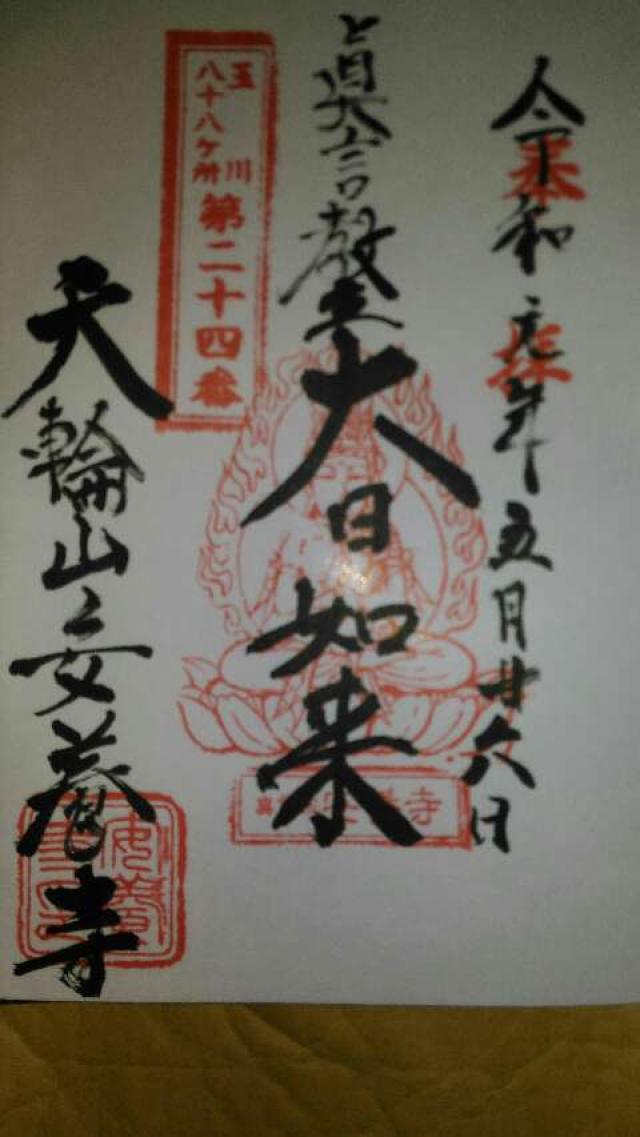 奉拝
令和元年五月廿六日
と眞言教主
大日如来
玉川
八十八ケ所
第二十四番
天輪山安養寺